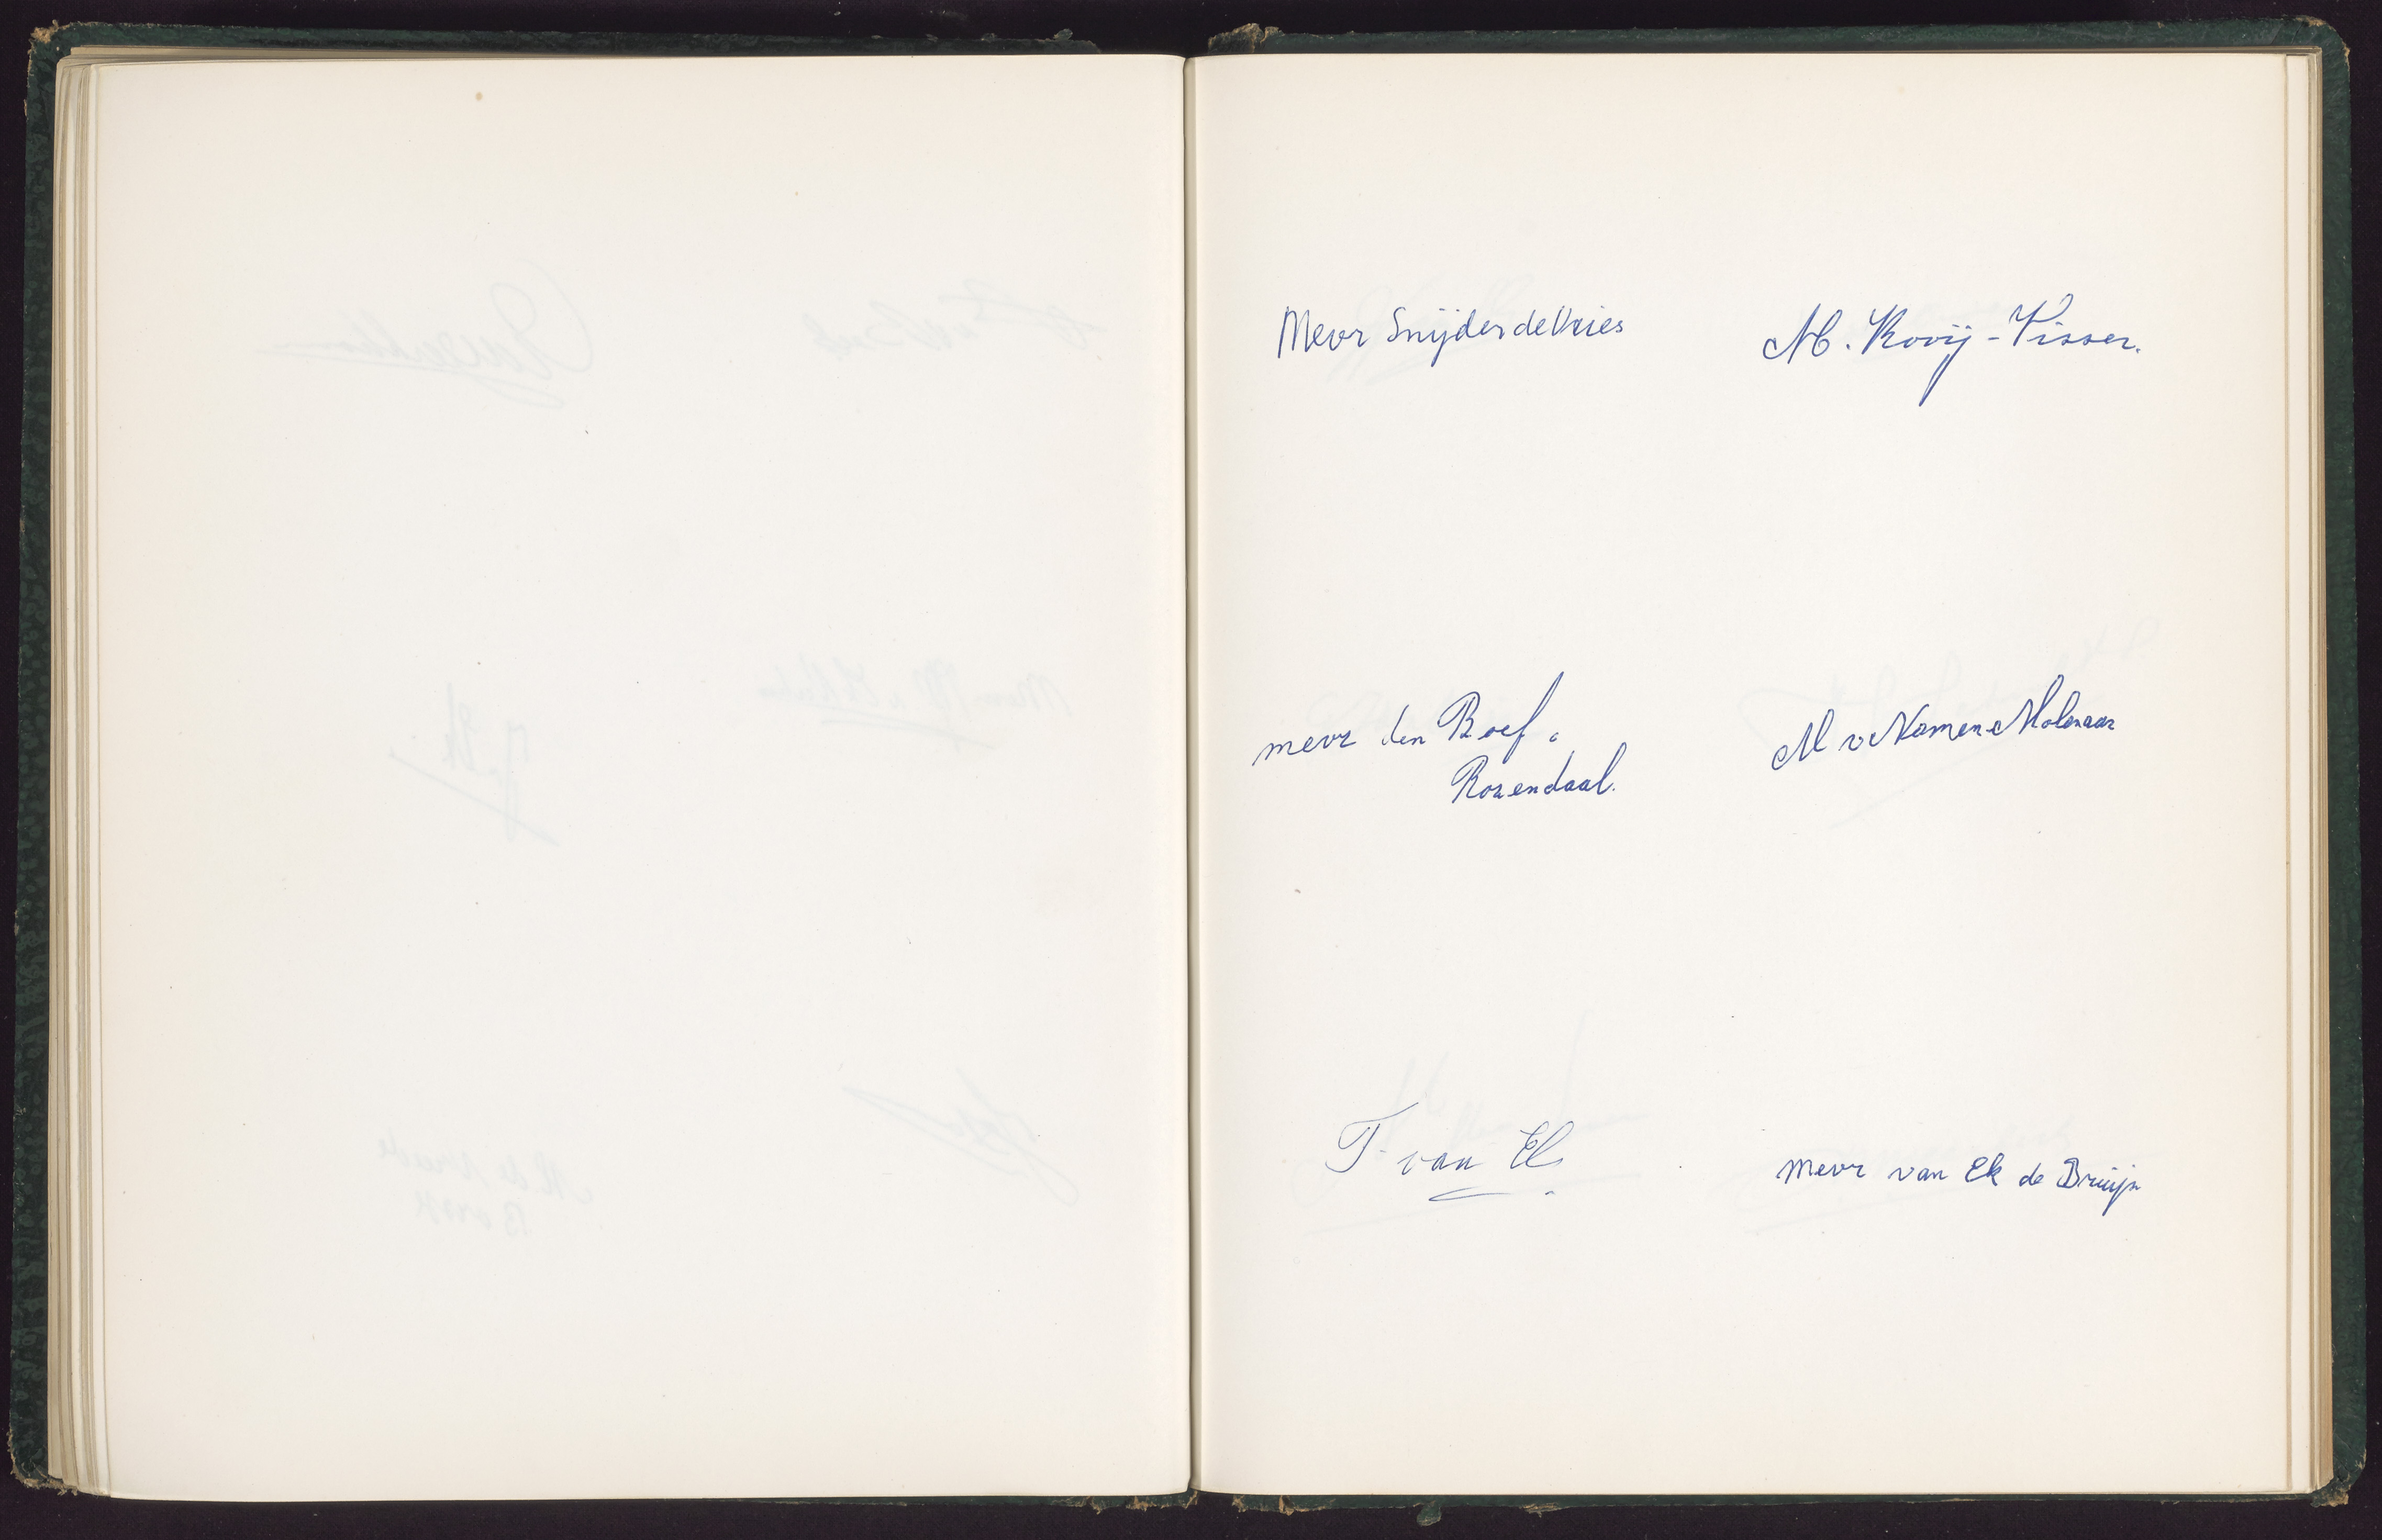 Mevr Snijder de Vries
M. Rooij - Visser.
mevr den Boef.
Rozendaal.
M v Namen Molenaar
T. van El
mevr van Ek de Bruijn